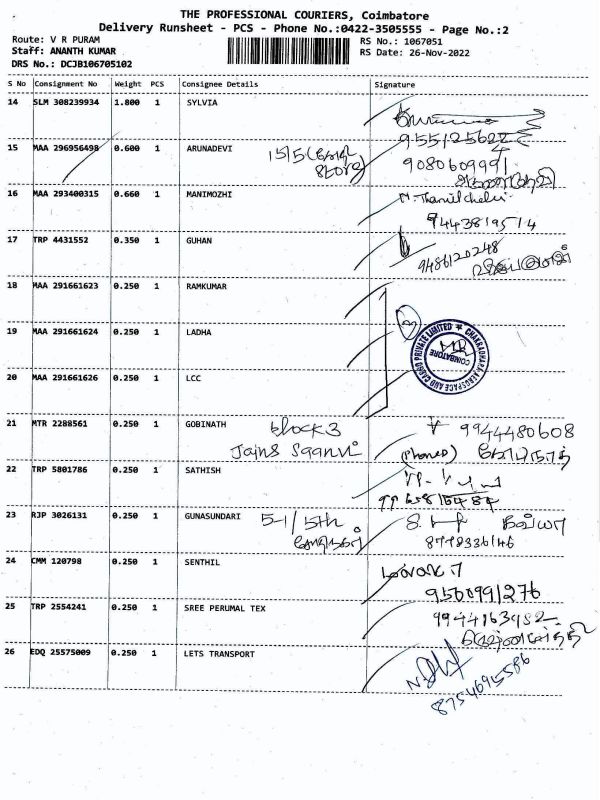 THE PROFESSIONAL COURIERS, Coimbatore
Delivery Runsheet - PCS - Phone No.:0422-3505555 - Page No.:2
Route: V R PURAM
RS No.: 1067051
Staff: ANANTH KUMAR
RS Date: 26-Nov-2022
DRS No.: DCJB106705102
S No Consignment No Weight PCS Consignee Details Signature
14 SLM 308239934 1.800 1 SYLVIA
15 MAA 296956498 0.600 1 ARUNADEVI 15/5
9080609991
16 MAA 293400315 0.660 1 MANIMOZHI
9443819514
17 TRP 4431552 0.350 1 GUHAN
9486120248
18 MAA 291661623 0.250 1 RAMKUMAR
19 MAA 291661624 0.250 1 LADHA
CHAKRADHARA AEROSPACE AND CARGO PRIVATE LIMITED
COIMBATORE
20 MAA 291661626 0.250 1 LCC
21 MTR 2288561 0.250 1 GOBINATH block 3 9944480608
Jains Saanvi (Phoned) கோபிநாத்
22 TRP 5801786 0.250 1 SATHISH
23 RJP 3026131 0.250 1 GUNASUNDARI 5-1/5th
24 CMM 120798 0.250 1 SENTHIL
9560991276
25 TRP 2554241 0.250 1 SREE PERUMAL TEX
26 EDQ 25575009 0.250 1 LETS TRANSPORT
8754695586